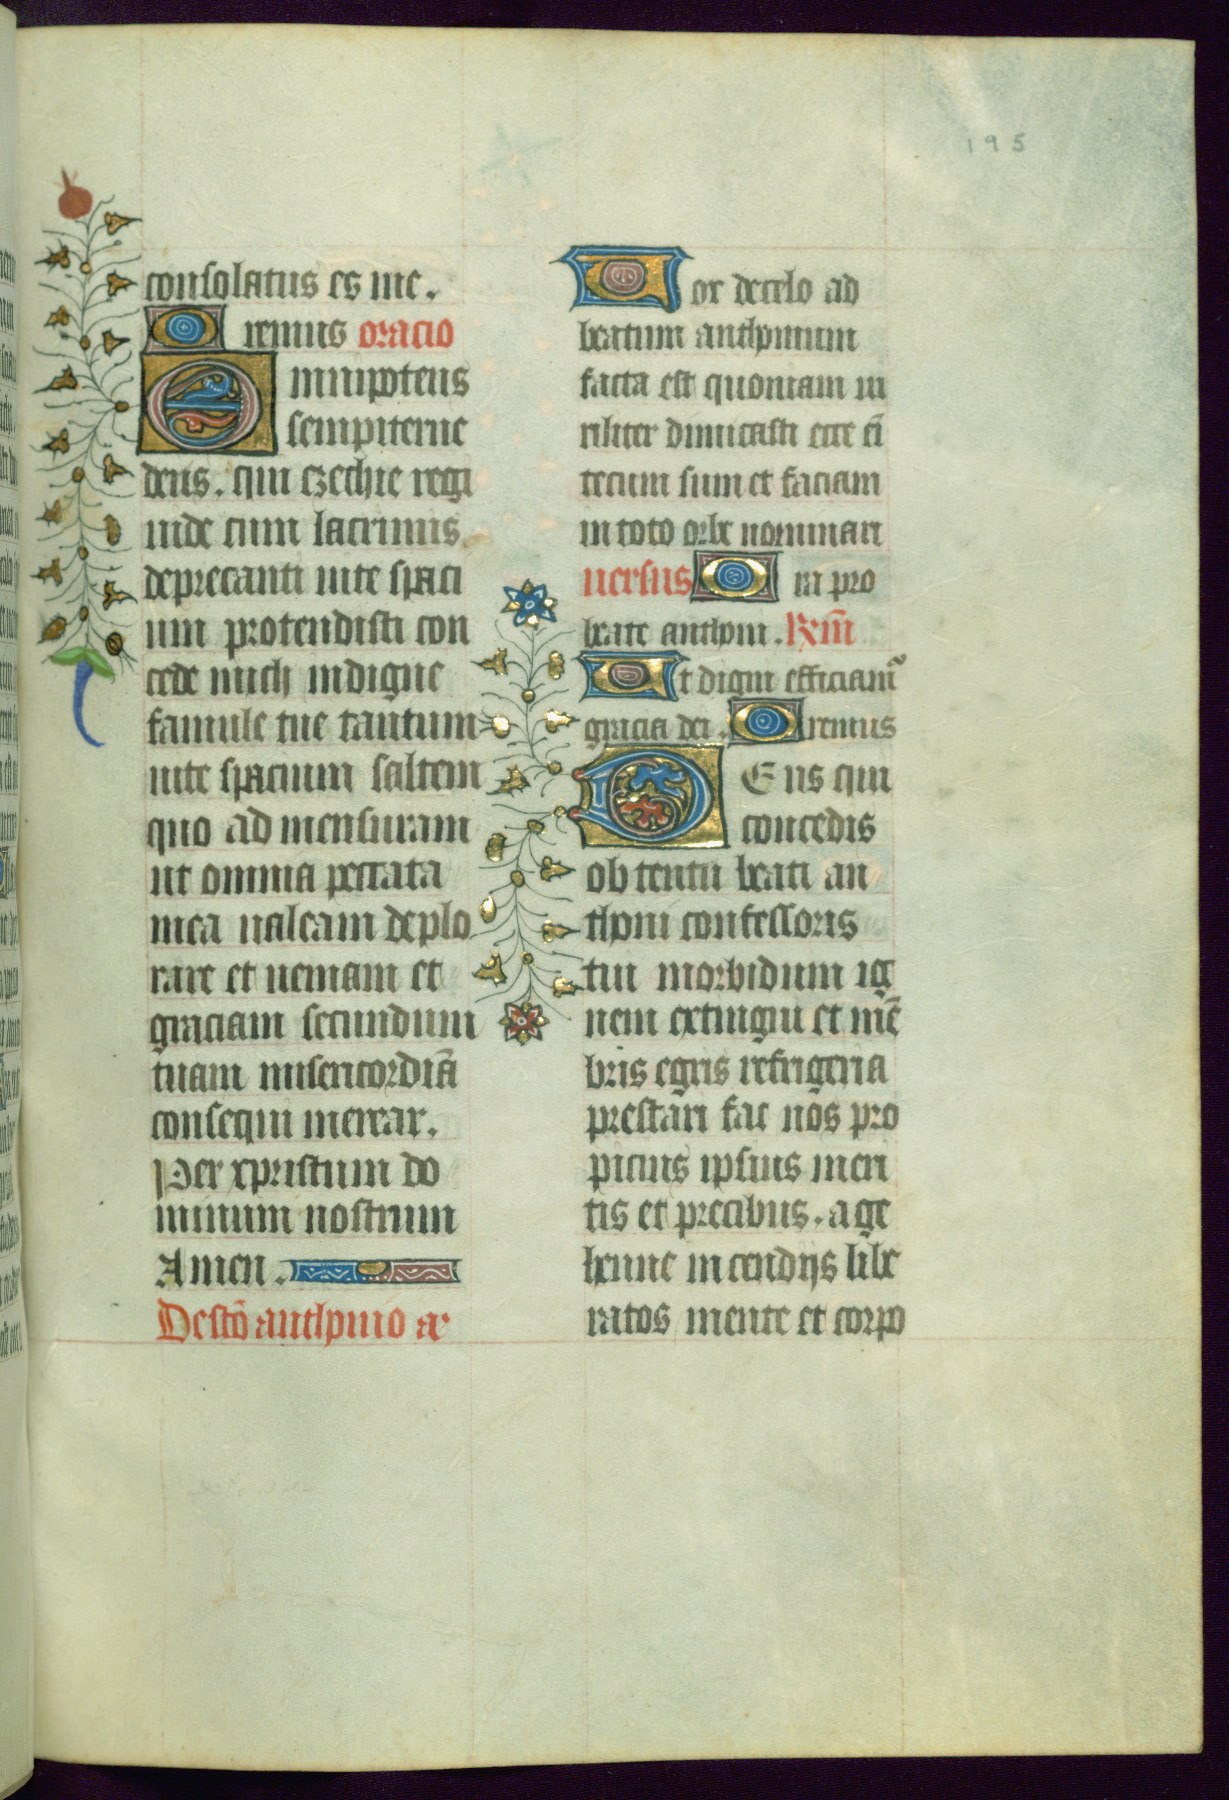 195
consolatus es me.
Oremus oracio
Omnipotens
sempiterne
deus. qui ezechie regi
iude cum lacrimis
deprecanti uite spaci
um protendisti con
cede mich indigne
famule tue tantum
uite spacium saltem
quo ad mensuram
ut omnia peccata
mea ualeam deplo
rare et ueniam et
graciam secundum
tuam misericordiā
consequi merear.
Per xpristum do
minum nostrum
Amen.
De sctō anthonio a͛
Vox de celo ad
beatum anthonium
facta est quoniam ui
riliter dimicasti ecce eī
tecum sum et faciam
in toto orbe nominari
uersus Ora pro
beate anthoni. Rm̄
Vt digni efficiam᷑
gracia dei. Oremus
DEus qui
concedis
ob tentu beati an
thoni confessoris
tui morbidum ig
nem extingui et mē
bris egris refrigeria
prestari fac nos pro
picius ipsius meri
tis et precibus. a ge
henne incendijs libe
ratos mente et corpo